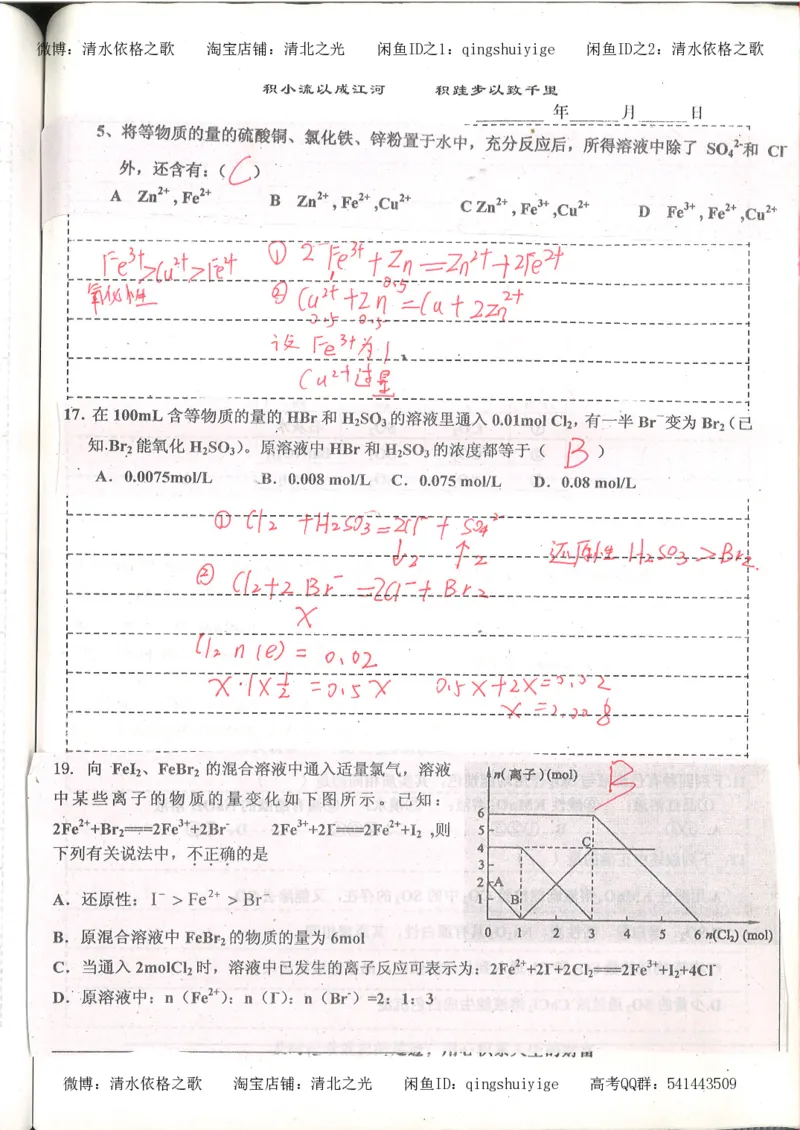 微博：清水依格之歌 淘宝店铺：清北之光 闲鱼ID之1：qingshuiyige 闲鱼ID之2：清水依格之歌
积小流以成江河 积跬步以致千里
年 月 日
5、将等物质的量的硫酸铜、氯化铁、锌粉置于水中，充分反应后，所得溶液中除了 SO₄²⁻和 Cl⁻
外，还含有：（ C ）
A Zn²⁺，Fe²⁺ B Zn²⁺，Fe²⁺,Cu²⁺ C Zn²⁺，Fe³⁺,Cu²⁺ D Fe³⁺，Fe²⁺,Cu²⁺
Fe³⁺>Cu²⁺>Fe²⁺ ① 2Fe³⁺+Zn=Zn²⁺+2Fe²⁺
氧化性 ② Cu²⁺+Zn=Cu+2Zn²⁺
0.5
0.5 0.5
设 Fe³⁺为1
Cu²⁺过量
17. 在 100mL 含等物质的量的 HBr 和 H₂SO₃ 的溶液里通入 0.01mol Cl₂，有一半 Br⁻变为 Br₂（已
知.Br₂ 能氧化 H₂SO₃）。原溶液中 HBr 和 H₂SO₃ 的浓度都等于（ B ）
A．0.0075mol/L B．0.008 mol/L C．0.075 mol/L D．0.08 mol/L
① Cl₂+H₂SO₃=2Cl⁻+SO₄²⁻
↓2 ↑2 还原性 H₂SO₃>Br₂.
② Cl₂+2Br⁻=2Cl⁻+Br₂
X
Cl₂ n(e)=0.02
X·1×½=0.5X 0.5X+2X=0.02
X=0.008
19. 向 FeI₂、FeBr₂ 的混合溶液中通入适量氯气，溶液
中某些离子的物质的量变化如下图所示。已知：
2Fe²⁺+Br₂===2Fe³⁺+2Br⁻ 2Fe³⁺+2I⁻===2Fe²⁺+I₂ ,则
下列有关说法中，不正确的是
B
A．还原性：I⁻＞Fe²⁺＞Br⁻
B．原混合溶液中 FeBr₂ 的物质的量为 6mol
C．当通入 2molCl₂ 时，溶液中已发生的离子反应可表示为：2Fe²⁺+2I⁻+2Cl₂===2Fe³⁺+I₂+4Cl⁻
D．原溶液中：n（Fe²⁺）：n（I⁻）：n（Br⁻）=2：1：3
n(离子)(mol)
6
5
4
3
2
1
A
B
C
0 1 2 3 4 5 6 n(Cl₂)(mol)
微博：清水依格之歌 淘宝店铺：清北之光 闲鱼ID：qingshuiyige 高考QQ群：541443509